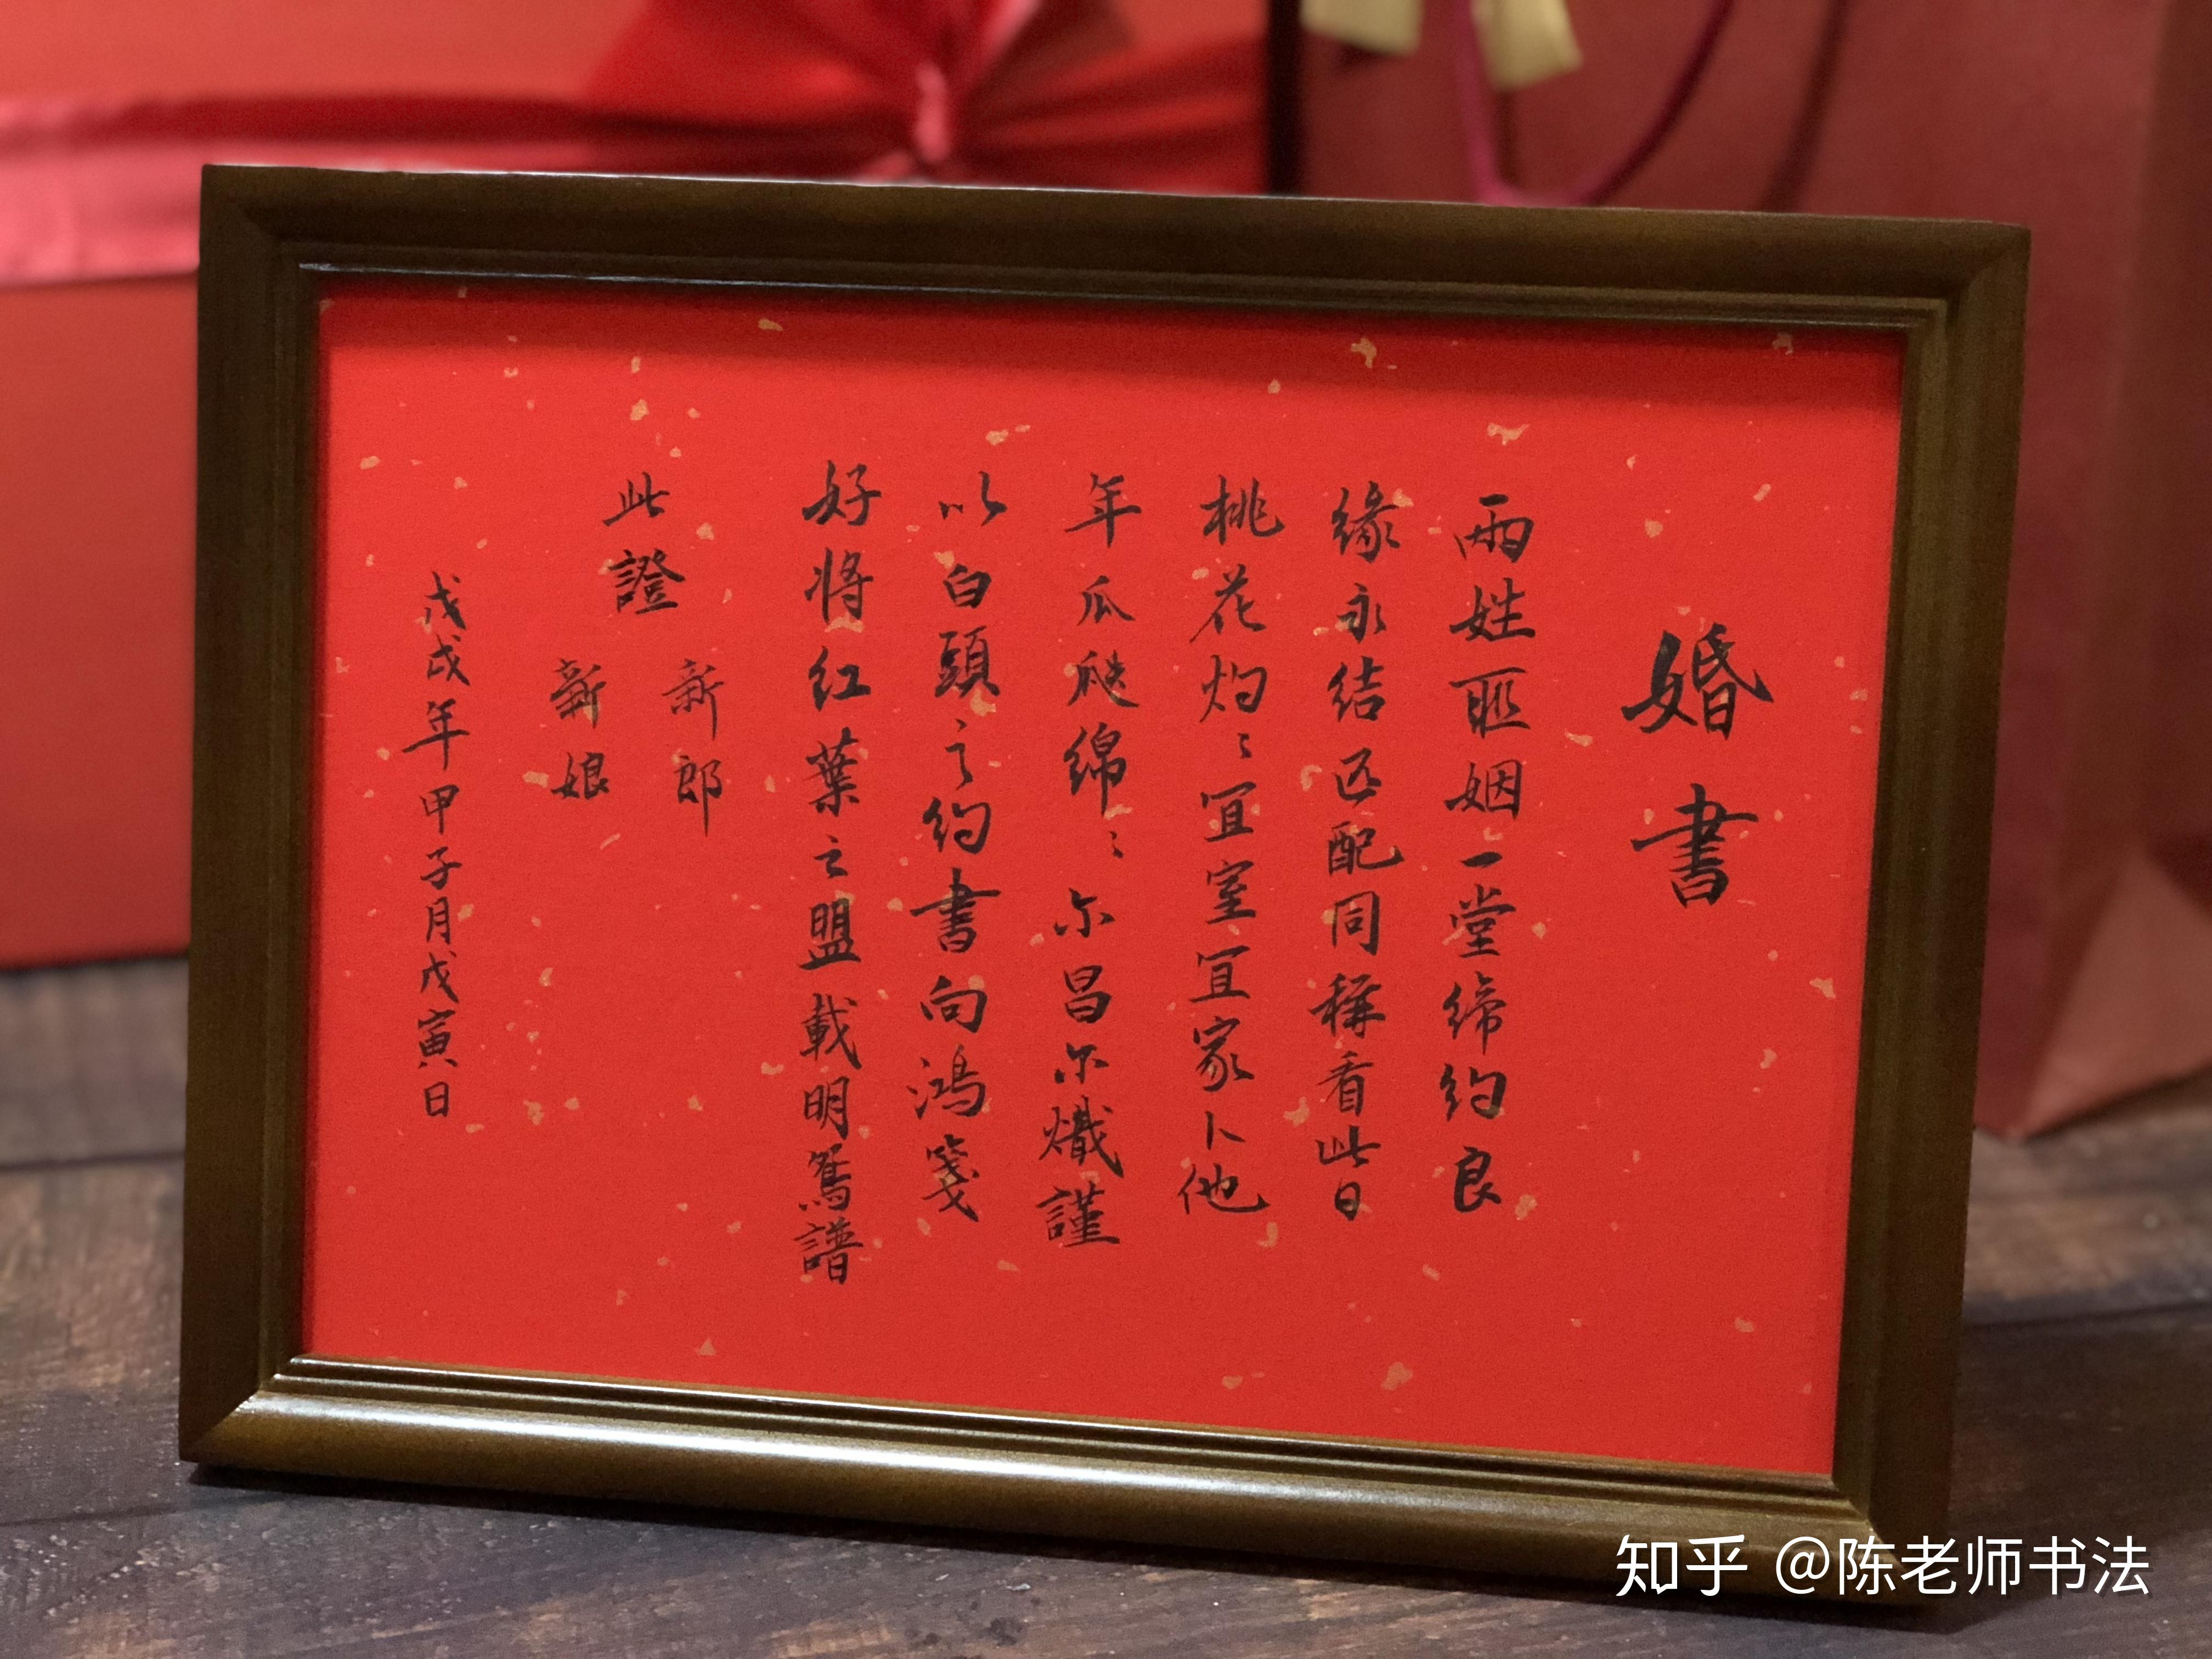 婚書
兩姓聯姻一堂締約良
緣永结匹配同稱看此日
桃花灼〻宜室宜家卜他
年瓜瓞綿〻尔昌尔熾謹
以白頭之約書向鴻箋
好将红葉之盟載明鴛譜
此證
新郎
新娘
戊戌年甲子月戊寅日
知乎 @陈老师书法